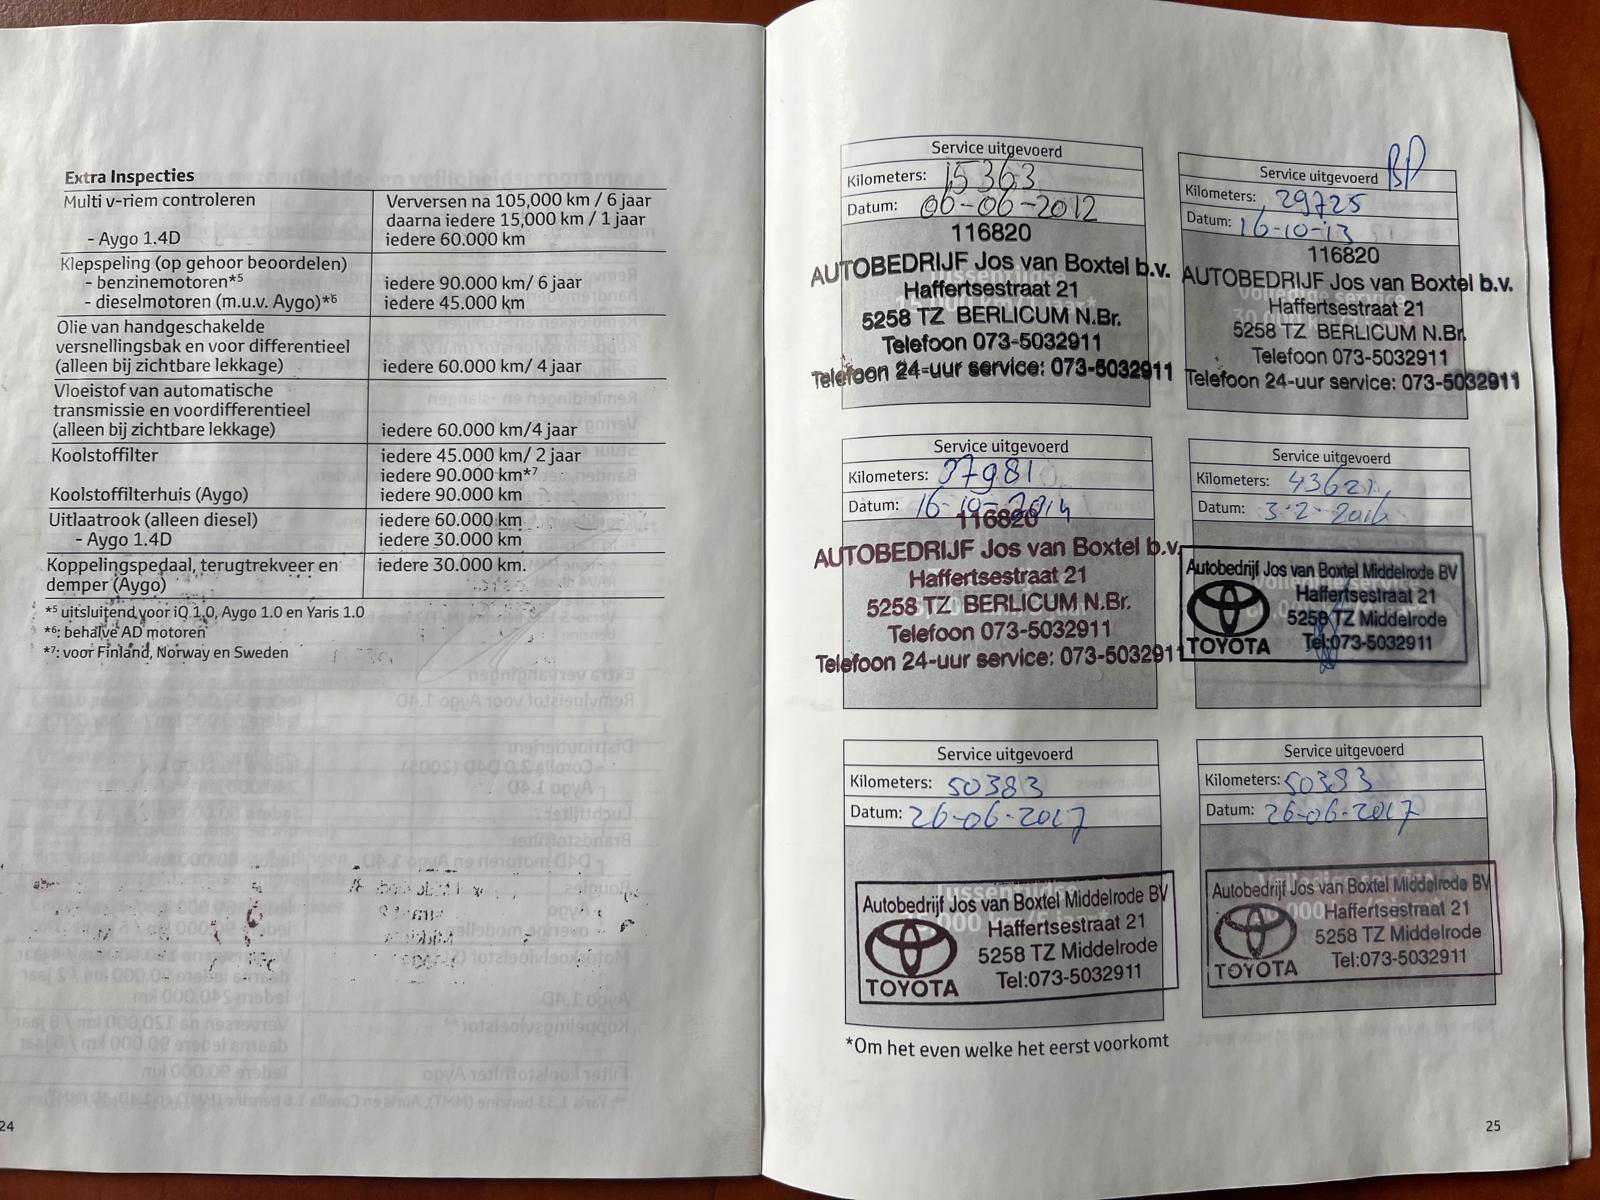 Extra Inspecties
Multi v-riem controleren
VerverSen na 105,000 km / 6 jaar
daarna iedere 15,000 km / 1 jaar
- Aygo 1.4D
iedere 60.000 km
Klepspeling (op gehoor beoordelen)
- benzinemotoren*5
iedere 90.000 km/ 6 jaar
- dieselmotoren (m.u.v. Aygo)*6
iedere 45.000 km
Olie van handgeschakelde
versnellingsbak en voor differentieel
(alleen bij zichtbare lekkage)
iedere 60.000 km/ 4 jaar
Vloeistof van automatische
transmissie en voordifferentieel
(alleen bij zichtbare lekkage)
iedere 60.000 km/4 jaar
Koolstoffilter
iedere 45.000 km/ 2 jaar
iedere 90.000 km*7
Koolstoffilterhuis (Aygo)
iedere 90.000 km
Uitlaatrook (alleen diesel)
iedere 60.000 km
- Aygo 1.4D
iedere 30.000 km
Koppelingspedaal, terugtrekveer en
demper (Aygo)
iedere 30.000 km.
*5 uitsluitend voor iQ 1.0, Aygo 1.0 en Yaris 1.0
*6: behalve AD motoren
*7: voor Finland, Norway en Sweden
24
Service uitgevoerd
Kilometers: 15363
Datum: 06-06-2012
116820
AUTOBEDRIJF Jos van Boxtel b.v.
Haffertsestraat 21
5258 TZ BERLICUM N.Br.
Telefoon 073-5032911
Telefoon 24-uur service: 073-5032911
Service uitgevoerd
Kilometers: 29725
Datum: 16-10-13
116820
AUTOBEDRIJF Jos van Boxtel b.v.
Haffertsestraat 21
5258 TZ BERLICUM N.Br.
Telefoon 073-5032911
Telefoon 24-uur service: 073-5032911
Service uitgevoerd
Kilometers: 37981
Datum: 16-10-2014
116820
AUTOBEDRIJF Jos van Boxtel b.v.
Haffertsestraat 21
5258 TZ BERLICUM N.Br.
Telefoon 073-5032911
Telefoon 24-uur service: 073-5032911
Service uitgevoerd
Kilometers:
Datum: 3-2-2016
Autobedrijf Jos van Boxtel Middelrode BV
Haffertsestraat 21
5258 TZ Middelrode
Tel:073-5032911
TOYOTA
Service uitgevoerd
Kilometers: 50383
Datum: 26-06-2017
Tussentijdse
Autobedrijf Jos van Boxtel Middelrode BV
Haffertsestraat 21
5258 TZ Middelrode
Tel:073-5032911
TOYOTA
Service uitgevoerd
Kilometers: 50383
Datum: 26-06-2017
Autobedrijf Jos van Boxtel Middelrode BV
Haffertsestraat 21
5258 TZ Middelrode
Tel:073-5032911
TOYOTA
*Om het even welke het eerst voorkomt
25